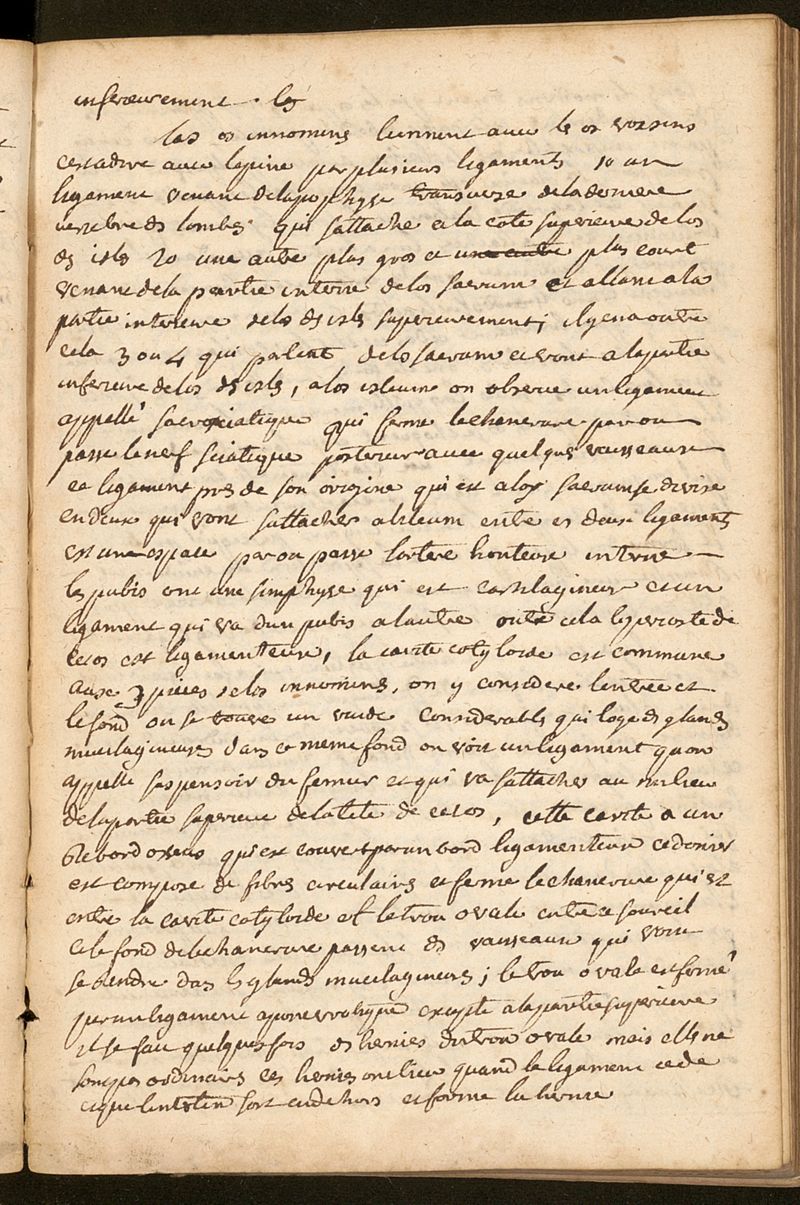 inferieurement . les
Les os innominés tiennent avec les os voisins
cest adire avec lepine par plusieurs ligaments 1o un
ligament venant de lapophyse transverse de la derniere
vertebre des lombes qui sattache a la cote superieure de los
des isles 2o une autre plus gros et une autre plus court
venant de la partie interne de los sacrum et allant a la
partie interieure de los des isles superieurement ; il y en a outre
cela 3 ou 4 qui partent de los sacrum et vont a la partie
inferieure de los des isles, a los isleum on observe un ligament
appellé sacrosciatique qui ferme lechancrure par ou
passe le nerf sciatique posterieur avec quelques vaisseaux
ce ligament pres de son origine qui est a los sacrum se divise
en deux qui vont sattacher a lileum entre ces deux ligaments
est une espace par ou passe lartere honteuse interne
les pubis ont une simphyse qui est cartilagineux et un
ligament qui va dun pubis a lautre outre cela le perioste de
cet os est ligamenteux, la cavite cotyloide est commune
aux 3 pieces de los innominé, on y considere lentrée et
le fond ou se trouve un vuide considerable qui loge des glandes
mucilagineuses dans ce meme fond on voit un ligament quon
appelle suspensoir du femur et qui va sattacher au milieu
de la partie superieure de la tete de cet os, cette cavite a un
rebord osseux qui est couvert par un bord ligamenteux ce dernier
est composé de fibres circulaires et ferme lechancrure qui est
entre la cavite cotyloide et le trou ovale entre ce sourcil
et le fond de lechancrure passent des vausseaux qui vont
se rendre dans les glandes mucilagineuses ; le trou ovale est fermé
par un ligament aponevrotique excepté a la partie superieure
il se fait quelques fois des hernies du trou ovale mais elles ne
sont pas ordinaires ces hernies ont lieu quand le ligament cede
et que lintestin sort en dehors et forme la hernie